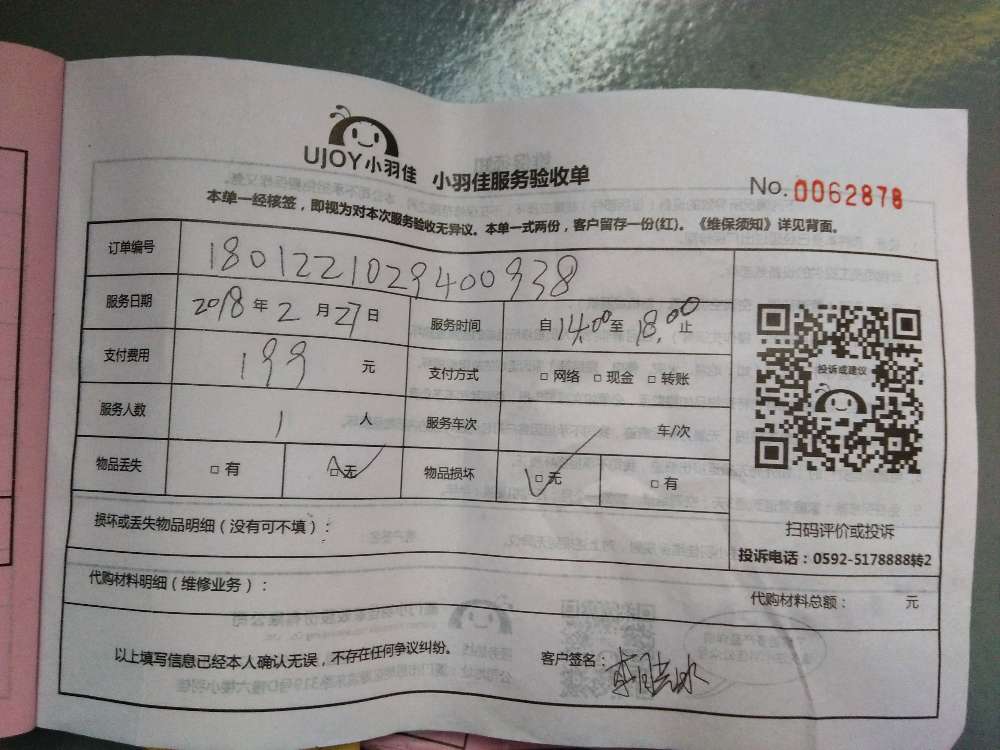 UJOY小羽佳 小羽佳服务验收单
No. 0062878
本单一经核签，即视为对本次服务验收无异议。本单一式两份，客户留存一份(红)。《维保须知》详见背面。
订单编号 1801221029400938
服务日期 2018 年 2 月 27 日 服务时间 自 14:00 至 18:00 止
支付费用 199 元 支付方式 □ 网络 □ 现金 □ 转账
服务人数 1 人 服务车次 车/次
物品丢失 □ 有 □ 无 ✓ 物品损坏 □ 无 ✓ □ 有
投诉或建议
扫码评价或投诉
投诉电话：0592-5178888转2
损坏或丢失物品明细（没有可不填）：
代购材料明细（维修业务）：
代购材料总额： 元
以上填写信息已经本人确认无误，不存在任何争议纠纷。 客户签名：